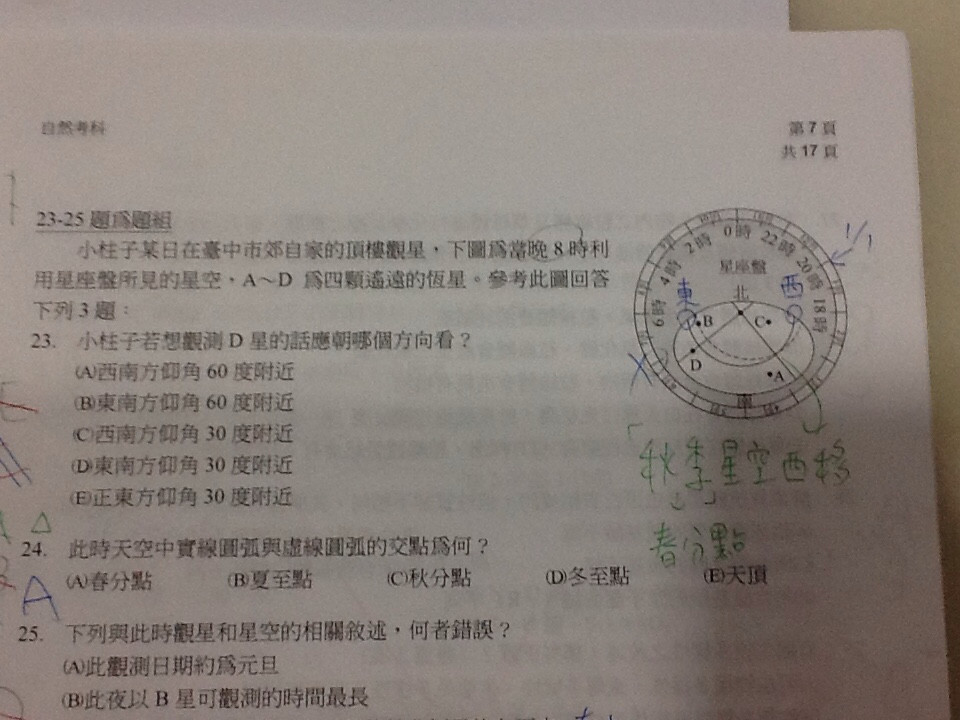 自然考科
第 7 頁
共 17 頁
23-25 題為題組
小柱子某日在臺中市郊自家的頂樓觀星，下圖為當晚 8 時利
用星座盤所見的星空，A～D 為四顆遙遠的恆星。參考此圖回答
下列 3 題：
23. 小柱子若想觀測 D 星的話應朝哪個方向看？
(A)西南方仰角 60 度附近
(B)東南方仰角 60 度附近
(C)西南方仰角 30 度附近
(D)東南方仰角 30 度附近
(E)正東方仰角 30 度附近
1/1
6時 4時 2時 0時 22時 20時 18時
星座盤
東 北 西
B C
D A
南
秋季星空西移
春分點
24. 此時天空中實線圓弧與虛線圓弧的交點為何？
(A)春分點 (B)夏至點 (C)秋分點 (D)冬至點 (E)天頂
A
25. 下列與此時觀星和星空的相關敘述，何者錯誤？
(A)此觀測日期約為元旦
(B)此夜以 B 星可觀測的時間最長